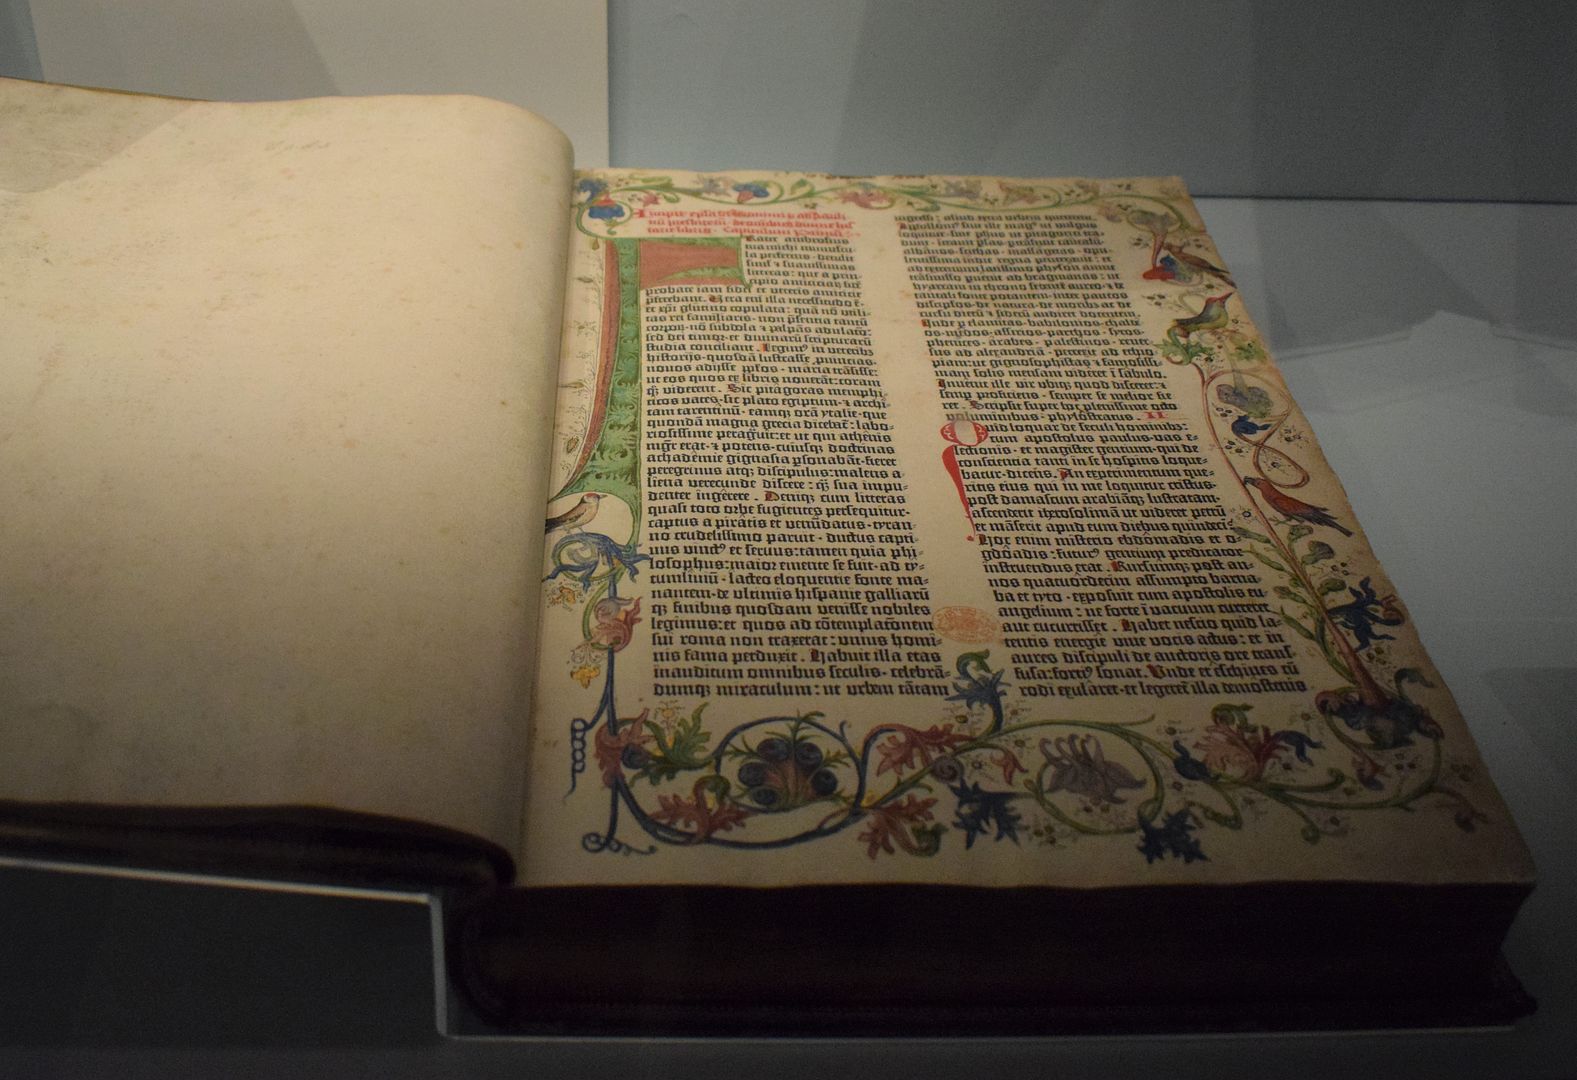 nū presbiterū de omnibus diuine his-
torie libris. Capitulum
Frater ambrosius
tua michi munuscu-
la preferens. detulit
simul et suauissimas
litteras: que a prin-
cipio amiciciarū fidē
probate iam fidei et veteris amicicie
preferebant. Vera enī illa necessitudo ē.
et xp̄i glutino copulata: quā nō utili-
tas rei familiaris. nō pn̄tia tantū
corporū. nō subdola et palpās adulatō:
sed dei timor. et diuinarū scripturarū
studia conciliant. Legimꝰ in veteribꝫ
historijs. quosdā lustrasse ꝓuincias.
nouos adijsse pplos. maria trāsisse:
ut eos quos ex libris nouerāt: coram
qꝫ viderent. Sic pitagoras memphi-
ticos vates. sic plato egiptum. et archi-
tam tarentinū. eamqꝫ orā ytalie. que
quondā magna grecia dicebat̄: labo-
riosissime peragrauit: et ut qui athēnis
mgr̄ erat. et potens. cuiusqꝫ doctrinas
achademie gignasia ꝑsonabāt. fieret
peregrinus atqꝫ discipulus: malens a-
liena verecunde discere: qꝫ sua impu-
denter ingērere. Deniqꝫ cum litteras
quasi toto orbe fugientes persequitur.
captus a pirātis et venūdatus. tyran-
no crudelissimo paruit. ductus capti-
uus vinctꝰ et seruus: tamen quia phi-
losophus: maior emente se fuit. ad ty-
tumliuiū. lacteo eloquentie fonte ma-
nantem. de vltimis hispanie galliarū
qꝫ finibus quosdam venisse nobiles
legimus: et quos ad cōtemplatōnem
sui roma non traxerat: vnius homi-
nis fama perduxit. Habuit illa etas
inauditum omnibus seculis. celebrā-
dumqꝫ miraculum: ut vrbem tātam
ingressi: aliud extra vrbem quererent.
Apollonius siue ille magꝰ ut vulgus
loquitur. siue phūs ut pitagorici tra-
dunt. intrauit ꝑsas. ꝑtrāsiuit caucasū.
albanos. scithas. massagetas. opu-
lentissima indie regna penetrauit: et
ad extremum latissimo physon amne
trāsmisso puenit ad bragmanas: ut
hyarcam in throno sedentē aureo et de
tantali fonte potantem. inter paucos
discipulos. de natura. de moribꝫ ac de
cursu dierū et siderū audiret docentem.
Inde ꝑ elamitas. babilonios. chalde-
os. medos. assirios. parthos. syros.
phenices. arabes. palestinos. reuer-
sus ad alexandriā. perrexit ad ethio-
piam: ut gignosophistas et famosissi-
mam solis mensam videret ī sabulo.
Inuenit ille vir vbiqꝫ quod disceret: et
semp proficiens. semper se melior fie-
ret. Scripsit super hoc plenissime octo
voluminibus. phylostratus. II
Quid loquar de seculi hominibꝫ:
cum apostolus paulus. vas e-
lectionis. et magister gentium. qui de
consciencia tanti in se hospitis loque-
batur. dicens. An experimentum que-
ritis eius qui in me loquitur cristus.
post damascum arabiāqꝫ lustratam.
ascenderit iherosolimā ut videret petrū
et māserit apud eum diebus quindeci.
Hoc enim misterio ebdōmadis et o-
gdōadis: futurꝰ gentium predicator
instruendus erat. Rursumqꝫ post an-
nos quatuordecim assumpto barna-
ba et tyto. exposuit cum apostolis eu-
angelium: ne forte ī vacuum curreret
aut cucurrisset. Habet nescio quid la-
tentis energie viue vocis actus: et in
aures discipuli de auctoris ore trans-
fusa: fortiꝰ sonat. Vnde et eschines cū
rodi exularet. et legeret̄ illa demostenis